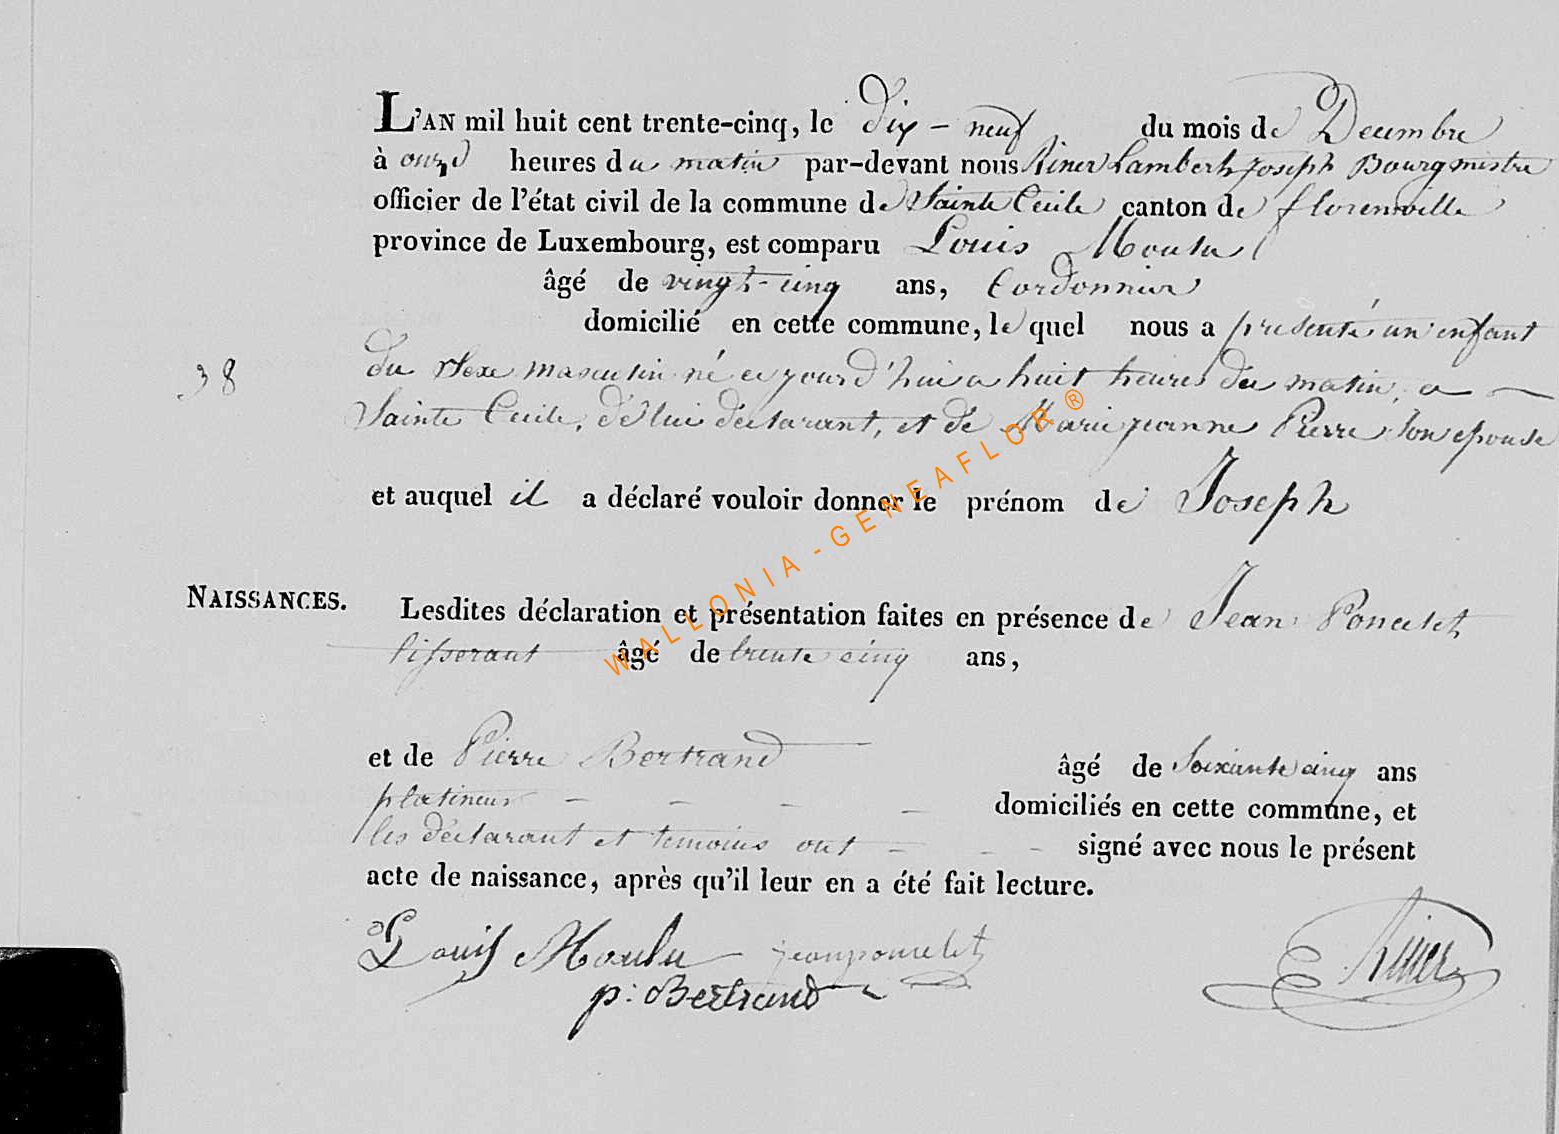 L'AN mil huit cent trente-cinq, le dix-neuf du mois de Decembre
à onze heures du matin par-devant nous Riner Lambert Joseph Bourgmestre
officier de l'état civil de la commune de Sainte Cecile canton de florenville
province de Luxembourg, est comparu Louis Moulu
âgé de vingt-cinq ans, Cordonnier
domicilié en cette commune, le quel nous a presenté un enfant
38
du sexe masculin né ce jourd'hui a huit heures du matin, a
Sainte Cecile, de lui déclarant, et de Marie jeanne Pierre son epouse
et auquel il a déclaré vouloir donner le prénom de Joseph
NAISSANCES.
Lesdites déclaration et présentation faites en présence de Jean Poncelet
tisserant âgé de trente cinq ans,
et de Pierre Bertrand âgé de Soixante cinq ans
platineur - - - - domiciliés en cette commune, et
les déclarant et temoins ont - - - signé avec nous le présent
acte de naissance, après qu'il leur en a été fait lecture.
Louis Moulu jean poncelet Riner
p: Bertrand
WALLONIA-GENEAFLOR®